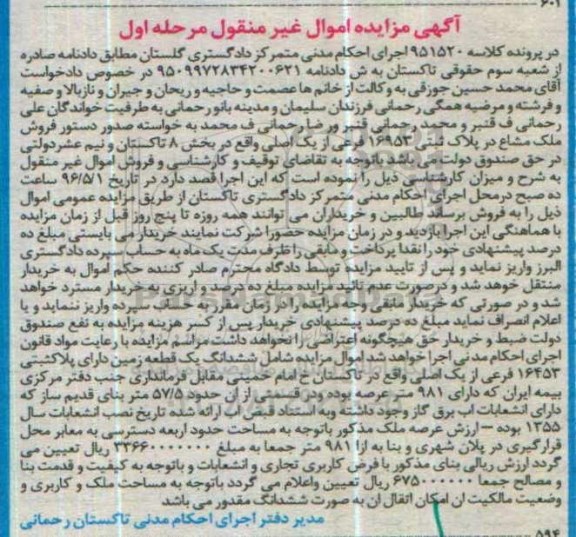 ۶۰۱
آگهی مزایده اموال غیر منقول مرحله اول
در پرونده کلاسه ۹۵۱۵۲۰ اجرای احکام مدنی متمرکز دادگستری گلستان مطابق دادنامه صادره
از شعبه سوم حقوقی تاکستان به ش دادنامه ۹۵۰۹۹۷۲۸۳۴۲۰۰۶۲۱ در خصوص دادخواست
آقای محمد حسین جوزقی به وکالت از خانم ها عصمت و حاجیه و ریحان و جیران و نازبالا و صفیه
و فرشته و مرضیه همگی رحمانی فرزندان سلیمان و مدینه بانو رحمانی به طرفیت خواندگان علی
رحمانی ف قنبر و محمد رحمانی قنبر ور ضا رحمانی ف محمد به خواسته صدور دستور فروش
ملک مشاع در پلاک ثبتی ۱۶۹۵۳ فرعی از یک اصلی واقع در بخش ۸ تاکستان و نیم عشر دولتی
در حق صندوق دولت می باشد باتوجه به تقاضای توقیف و کارشناسی و فروش اموال غیر منقول
به شرح و میزان کارشناسی ذیل را نموده است که این اجرا قصد دارد در تاریخ ۹۶/۵/۱ ساعت
ده صبح درمحل اجرای احکام مدنی متمرکز دادگستری تاکستان از طریق مزایده عمومی اموال
ذیل را به فروش برساند طالبین و خریداران می توانند همه روزه تا پنج روز قبل از زمان مزایده
با هماهنگی این اجرا بازدید و در زمان مزایده حضورا شرکت نمایند خریدار می بایستی مبلغ ده
درصد پیشنهادی خود را نقدا پرداخت و مابقی را ظرف مدت یک ماه به حساب سپرده دادگستری
البرز واریز نماید و پس از تایید مزایده توسط دادگاه محترم صادر کننده حکم اموال به خریدار
منتقل خواهد شد و درصورت عدم تائید مزایده مبلغ ده درصد و اریزی به خریدار مسترد خواهد
شد و در صورتی که خریدار مابقی وجه مزایده را در زمان مقرر به حساب سپرده واریز ننماید و یا
اعلام انصراف نماید مبلغ ده درصد پیشنهادی خریدار پس از کسر هزینه مزایده به نفع صندوق
دولت ضبط و خریدار حق هیچگونه اعتراضی را نخواهد داشت مراسم مزایده با رعایت مواد قانون
اجرای احکام مدنی اجرا خواهد شد اموال مزایده شامل ششدانگ یک قطعه زمین دارای پلاکثبتی
۱۶۴۵۳ فرعی از یک اصلی واقع در تاکستان خ امام خمینی مقابل فرمانداری جنب دفتر مرکزی
بیمه ایران که دارای ۹۸۱ متر عرصه بوده ودر قسمتی از آن حدود ۵۷/۵ متر بنای قدیم ساز که
دارای انشعابات اب برق گاز وجود داشته وبه استناد قبض اب ارائه شده تاریخ نصب انشعابات سال
۱۳۵۵ بوده – ارزش عرصه ملک مذکور باتوجه به مساحت حدود اربعه دسترسی به معابر محل
قرارگیری در پلان شهری و بنا به ازا ۹۸۱ متر جمعا به مبلغ ۳۳۶۶۰۰۰۰۰۰۰ ریال تعیین می
گردد ارزش ریالی بنای مذکور با فرض کاربری تجاری و انشعابات و باتوجه به کیفیت و قدمت بنا
و مصالح جمعا ۶۷۵۰۰۰۰۰۰ ریال تعیین واعلام می گردد باتوجه به مساحت ملک و کاربری و
وضعیت مالکیت ان امکان انتقال ان به صورت ششدانگ مقدور می باشد
مدیر دفتر اجرای احکام مدنی تاکستان رحمانی
۵۹۴